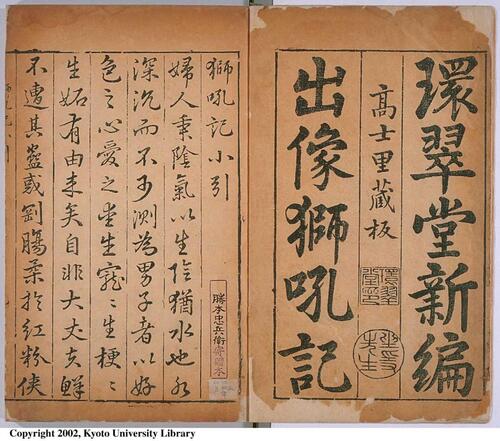 環翠堂新編
高士里藏板
環翠堂印
坐隱先生
出像獅吼記
獅吼記小引
婦人秉陰氣以生陰猶水也水
深沉而不可測為男子者以好
色之心愛之愛生寵寵生梗梗
生妬有由来矣自非大丈夫鮮
不遭其蠱惑剛腸柔於紅粉俠
勝本忠兵衛寄贈本
Copyright 2002, Kyoto University Library